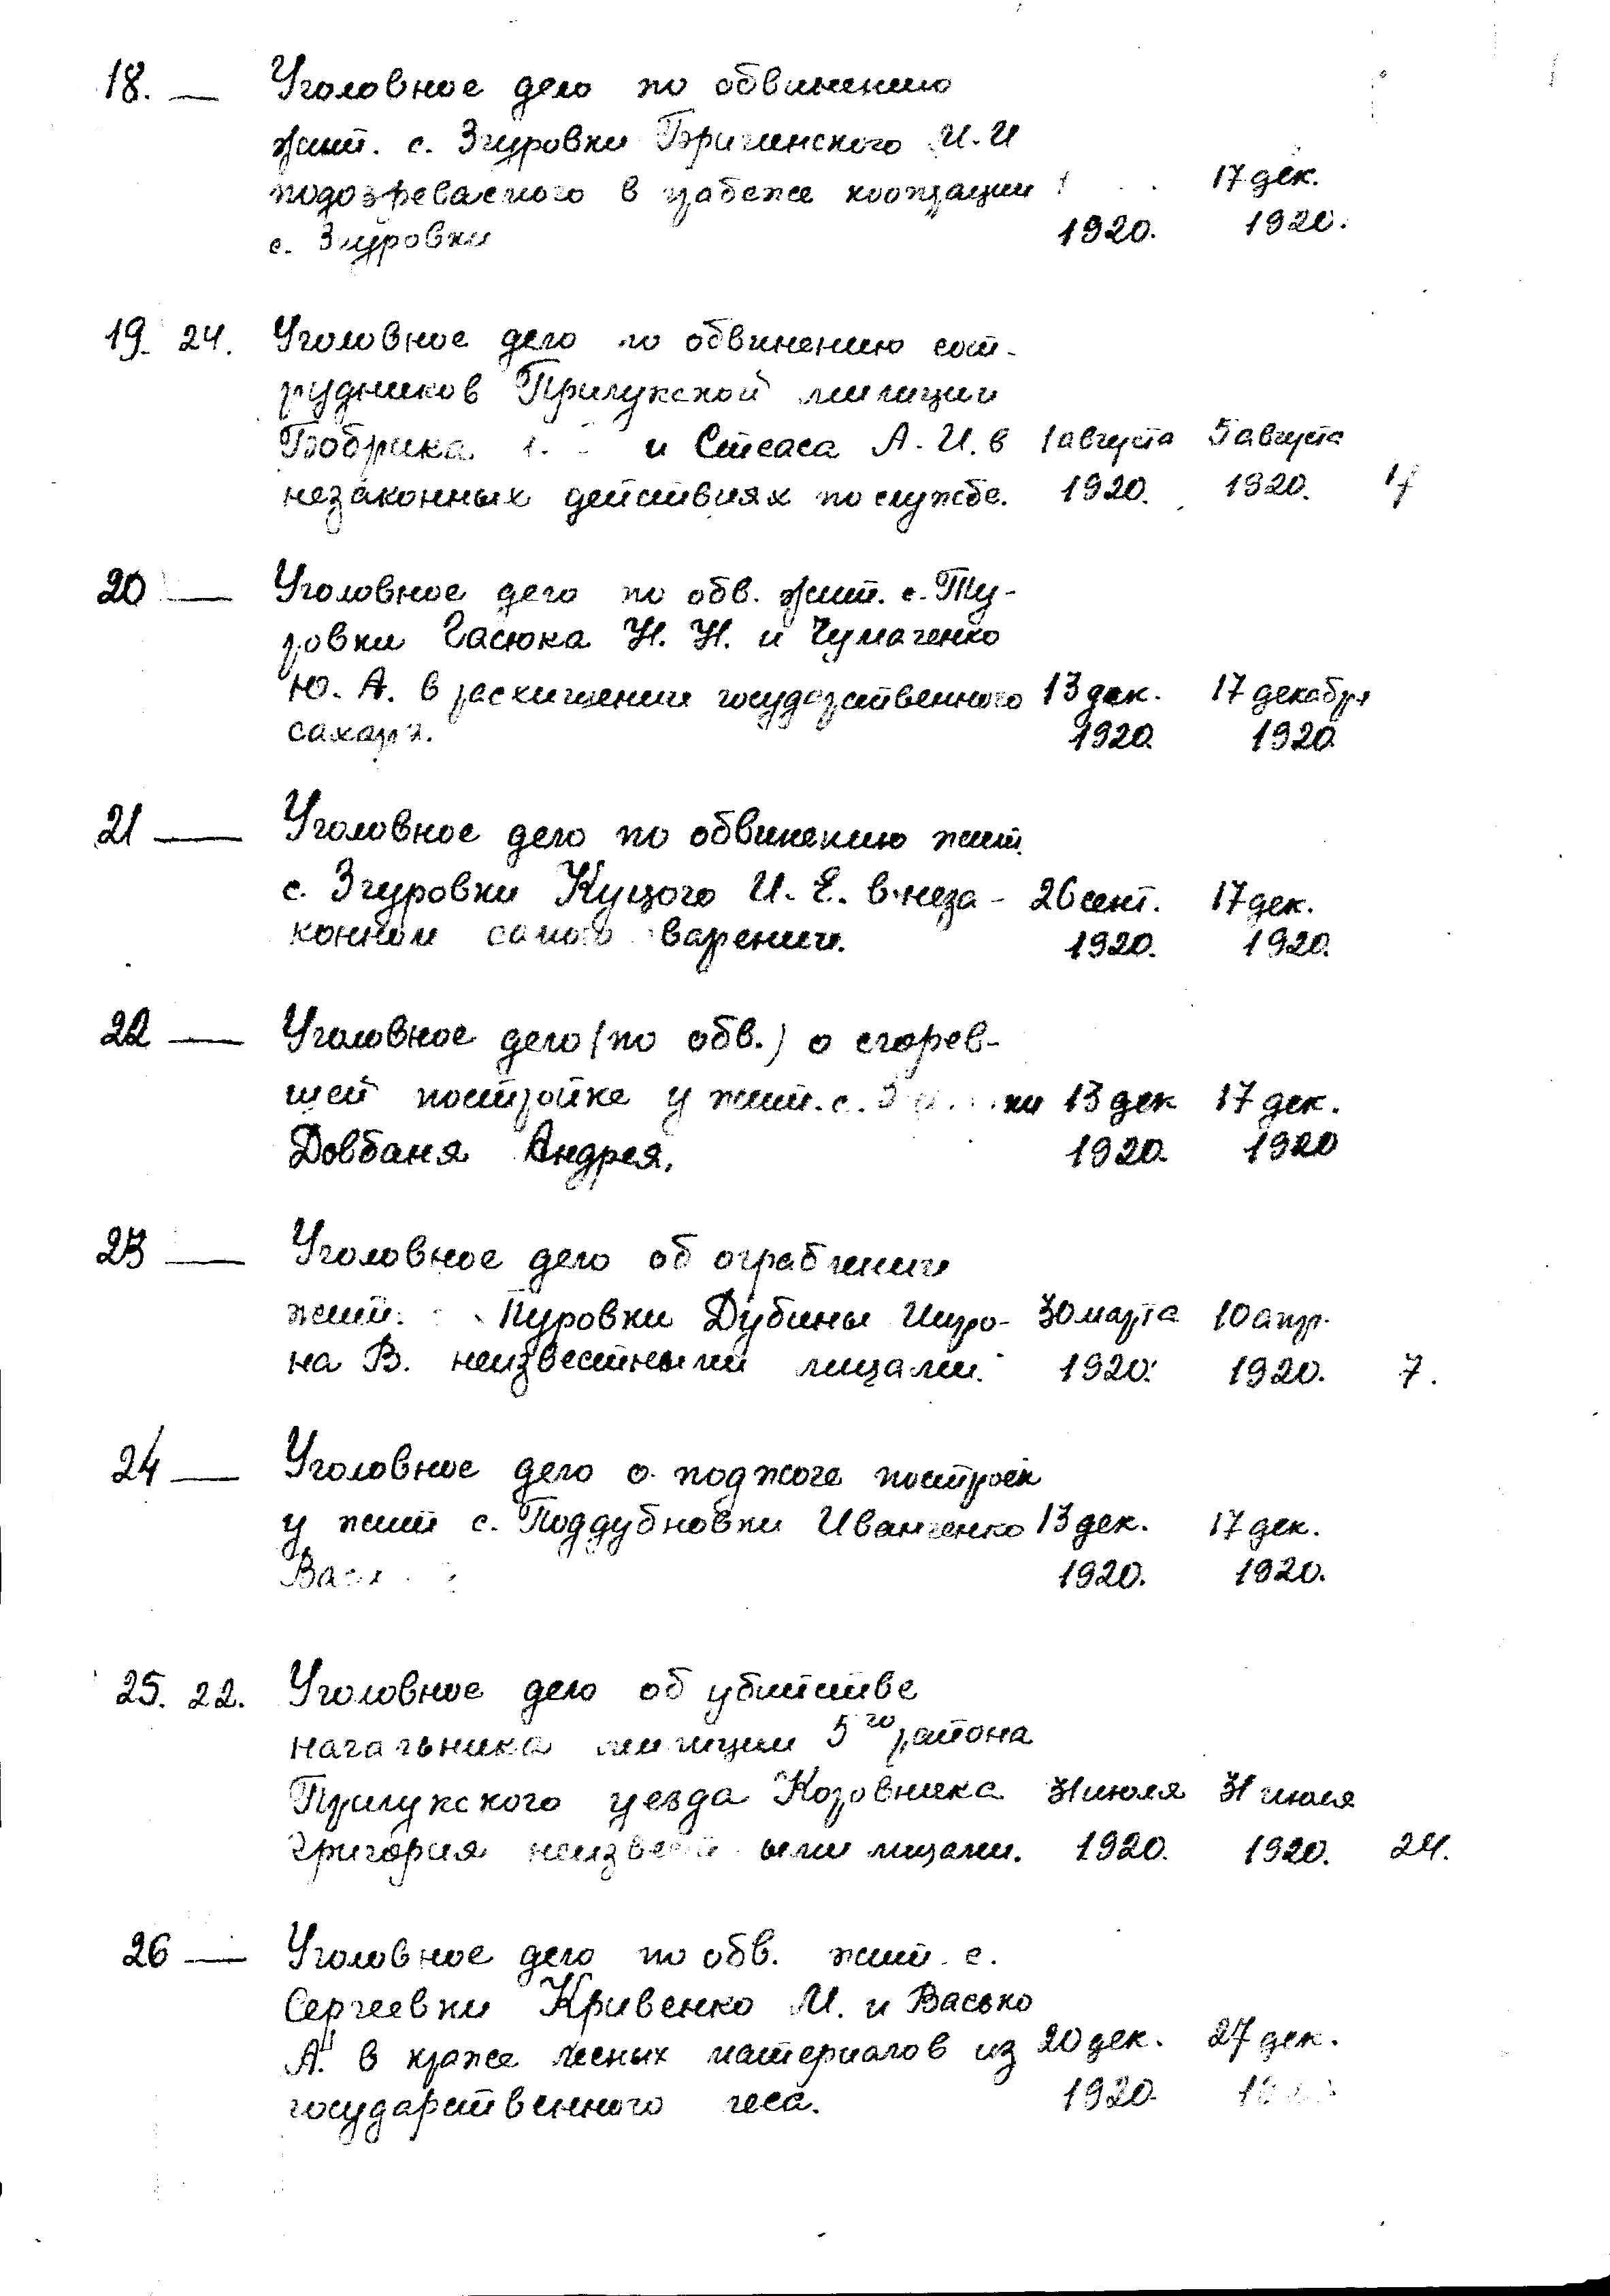 18. — Уголовное дело по обвинению
жит. с. Згуровки Бригинского И. И
подозреваемого в грабеже кооперации 17 дек.
с. Згуровки 1920. 1920.
19. 24. Уголовное дело по обвинению сот-
рудников Прилукской милиции
Бобрика и Стеаса А. И. в 1 августа 5 августа
незаконных действиях по службе. 1920. 1920.
20 — Уголовное дело по обв. жит. с. Ту-
ровки Гасюка Н. Н. и Чумаченко
Ю. А. в расхищении государственного 13 дек. 17 декабря
сахара. 1920. 1920
21 — Уголовное дело по обвинению жит.
с. Згуровки Куцого И. Е. в неза- 26 сент. 17 дек.
конном самого варении. 1920. 1920.
22 — Уголовное дело (по обв.) о сгорев-
шей постройке у жит. с. 13 дек 17 дек.
Довбаня Андрея. 1920. 1920
23 — Уголовное дело об ограблении
жит. Туровки Дубины Миро- 30 марта 10 апр.
на В. неизвестными лицами. 1920. 1920. 7.
24 — Уголовное дело о поджоге построек
у жит с. Поддубновки Иванченко 13 дек. 17 дек.
1920. 1920.
25. 22. Уголовное дело об убийстве
начальника милиции 5го района
Прилукского уезда Коровника 31 июля 31 июля
Григория неизвестными лицами. 1920. 1920. 24.
26 — Уголовное дело по обв. жит. с.
Сергеевки Кривенко М. и Васько
А. в краже лесных материалов из 20 дек. 27 дек.
государственного леса. 1920.